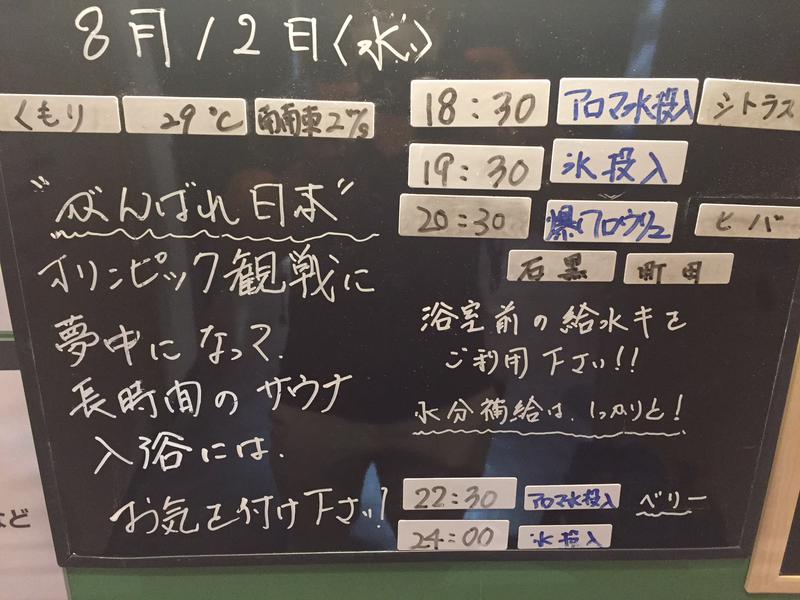 8月12日(水)
くもり 29℃ 南南東2m/s
18:30 アロマ水投入 シトラス
19:30 氷投入
20:30 爆アロウリュ ヒバ
石黒 町田
"がんばれ日本"
オリンピック観戦に
夢中になって、
長時間のサウナ
入浴には、
お気を付け下さい!
浴室前の給水キを
ご利用下さい!!
水分補給は、しっかりと!
22:30 アロマ水投入 ベリー
24:00 氷投入
など